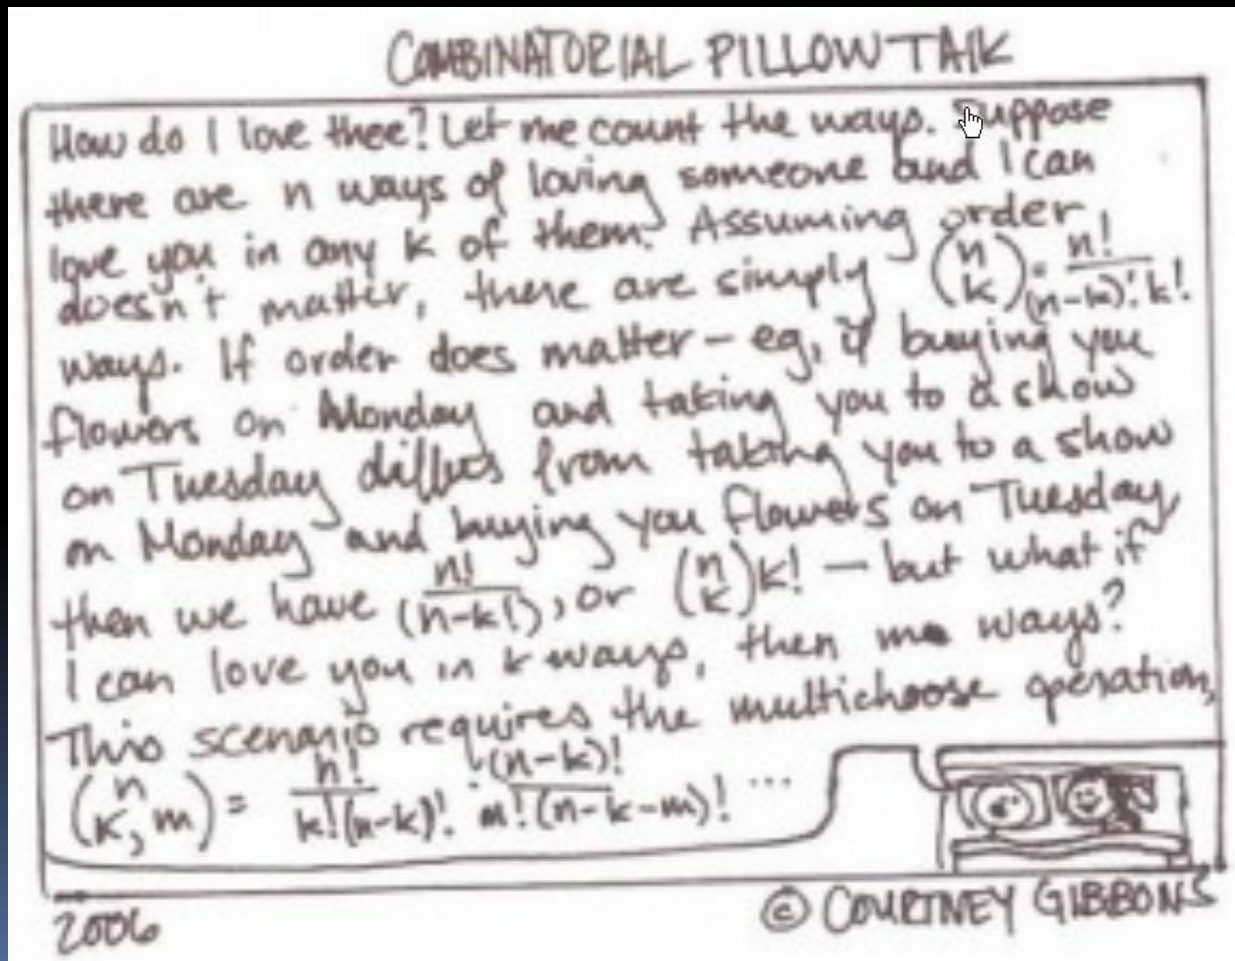 COMBINATORIAL PILLOW TALK
How do I love thee? Let me count the ways. Suppose
there are n ways of loving someone and I can
love you in any k of them. Assuming order
doesn't matter, there are simply (n k) = n!/(n-k)!k!
ways. If order does matter - eg, if buying you
flowers on Monday and taking you to a show
on Tuesday differs from taking you to a show
on Monday and buying you flowers on Tuesday,
then we have n!/(n-k!), or (n k)k! — but what if
I can love you in k ways, then m ways?
This scenario requires the multichoose operation,
(n k, m) = n!/k!(n-k)! · (n-k)!/m!(n-k-m)! ...
2006 © COURTNEY GIBBONS